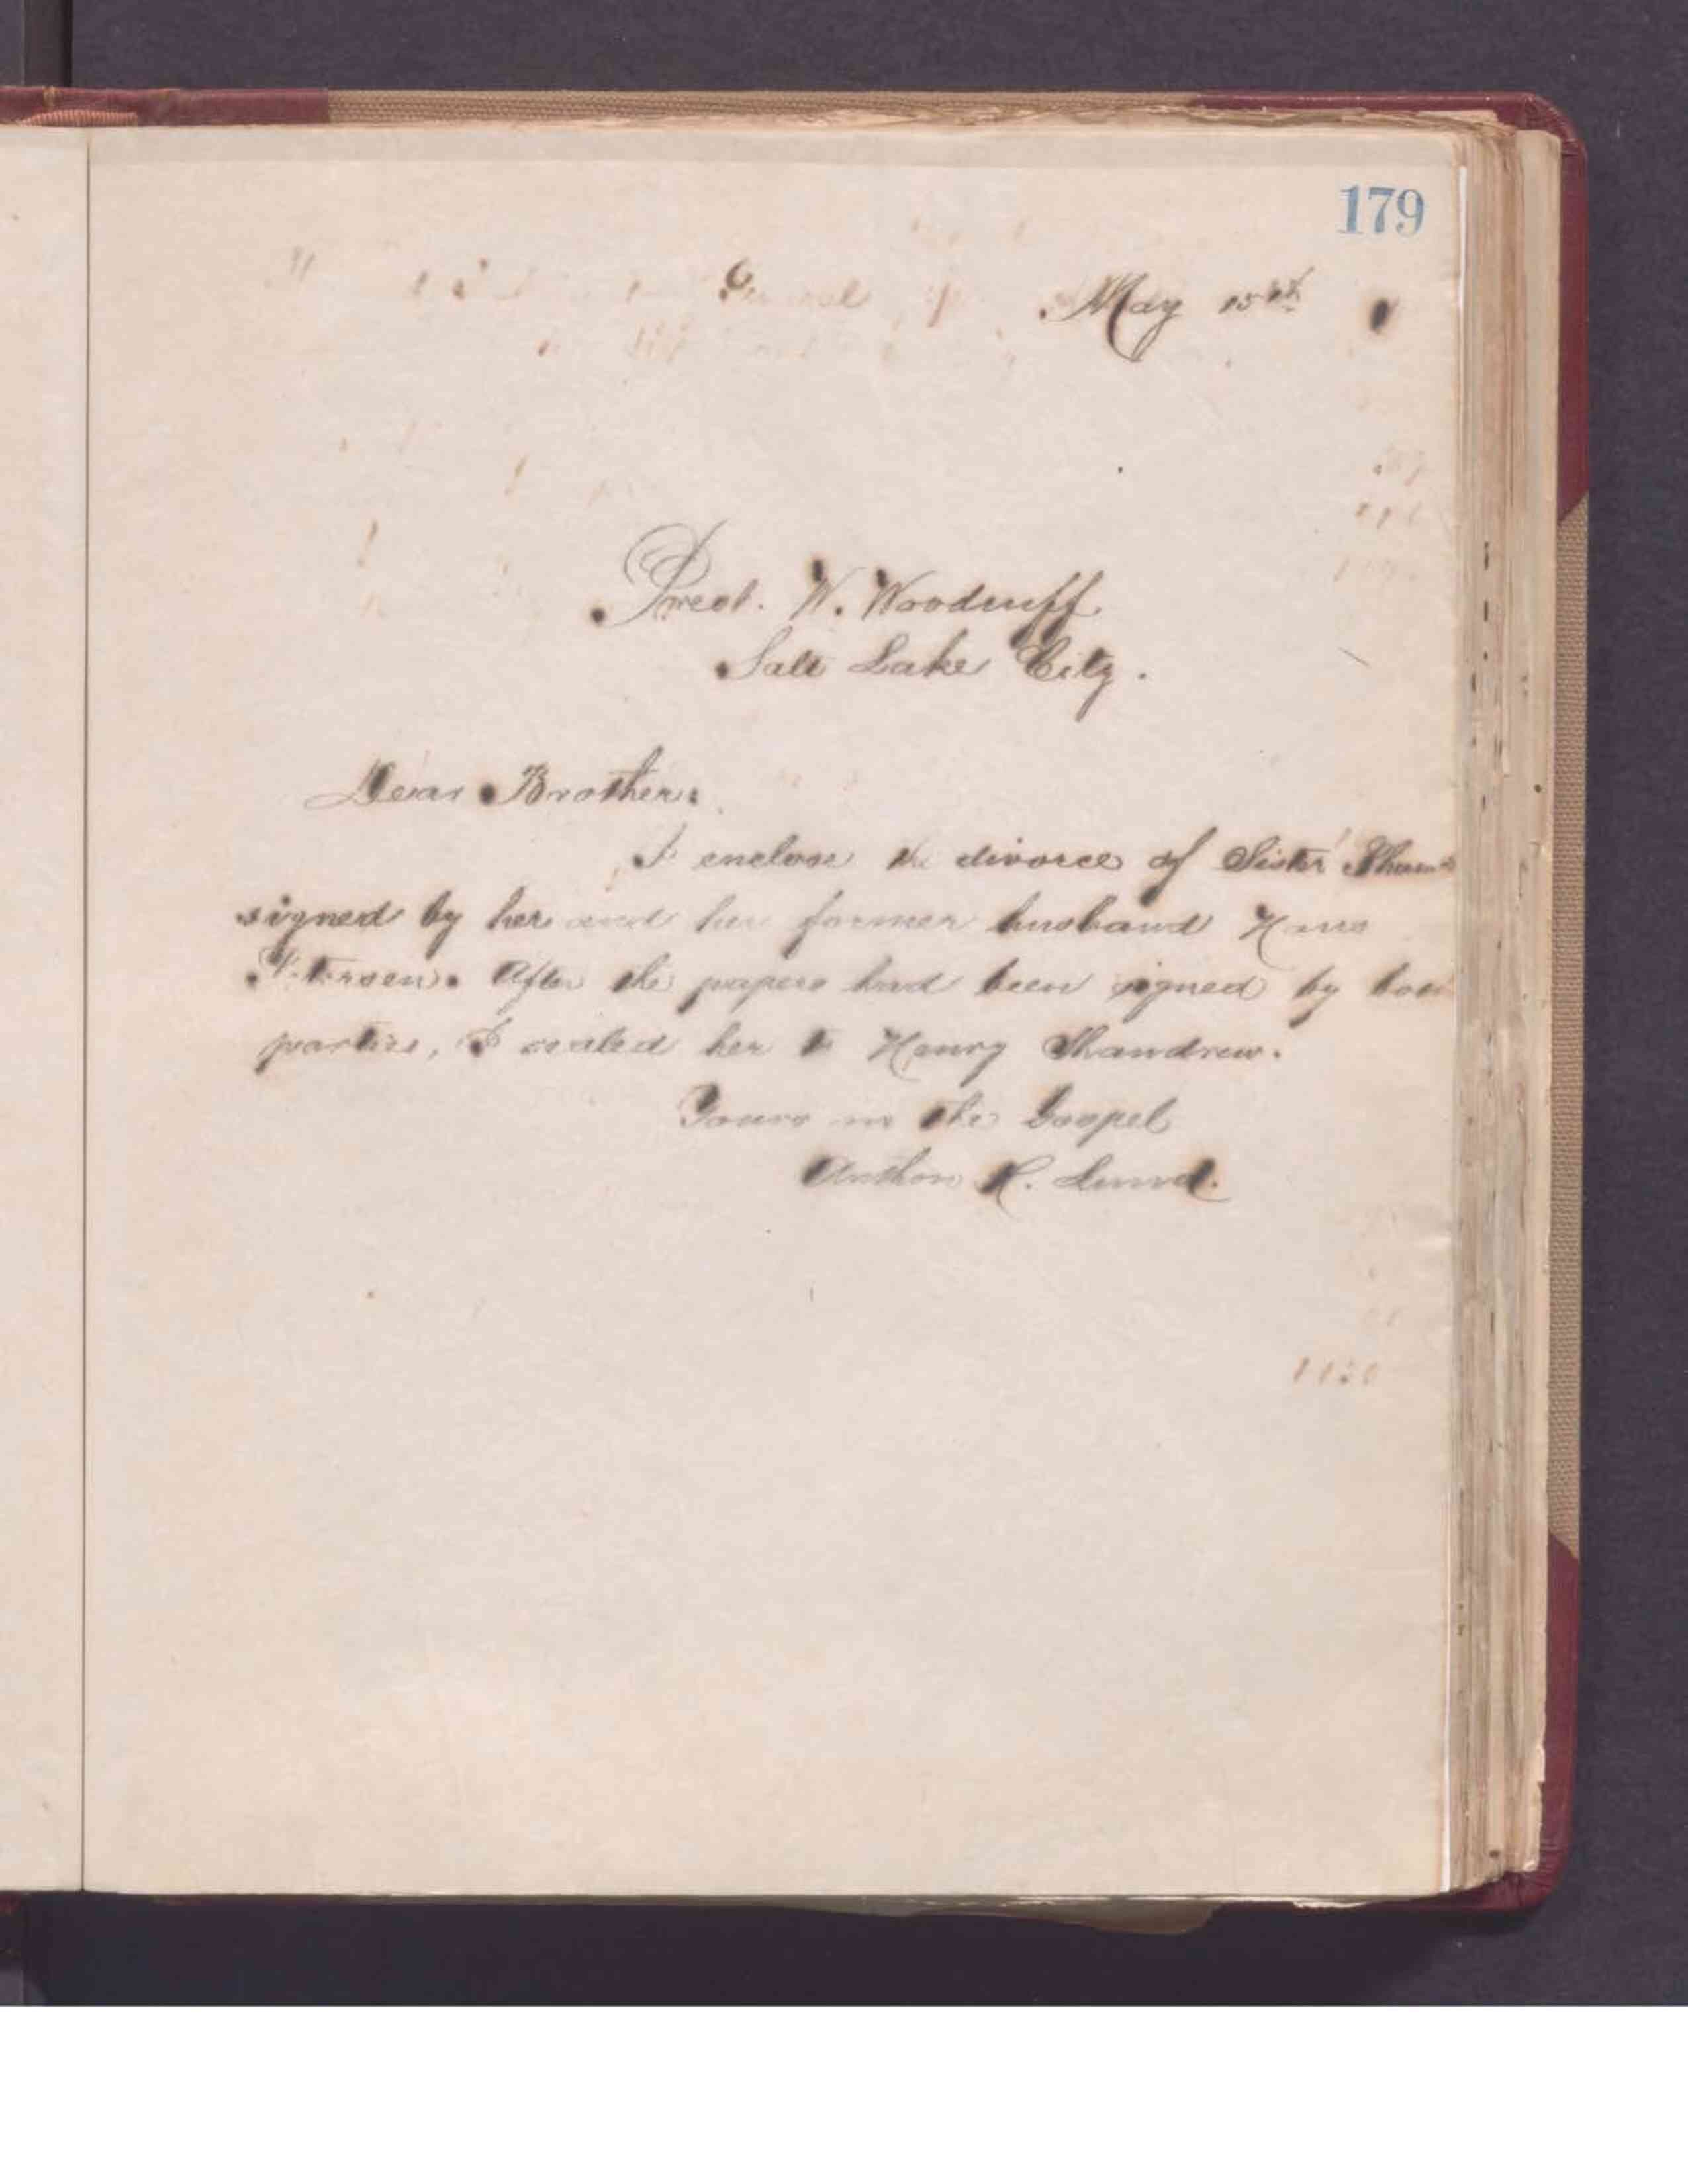 179
May 15th
Prest. W. Woodruff
Salt Lake City.
Dear Brother:
I enclose the divorce of Sister
signed by her and her former husband Hans
Petersen. After the papers had been signed by both
parties, I sealed her to Henry Shandrew.
Yours in the Gospel
Anthon H. Lund.